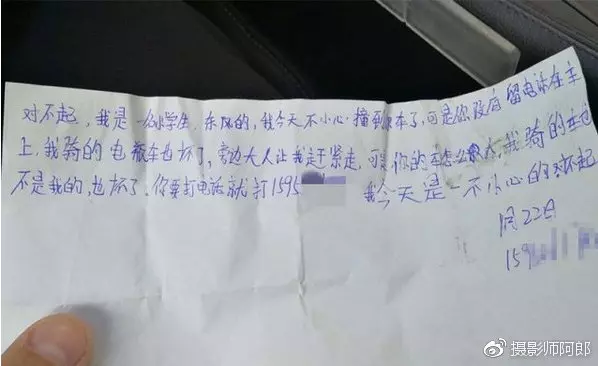 对不起，我是一名小学生，东风的，我今天不小心撞到了，可是你没有留电话在车
上，我骑的电瓶车也坏了，旁边大人让我赶紧走，可是你的车怎么办，我骑的车也
不是我的，也坏了，你要打电话就打1595 我今天是一不小心的对不起
月22日
159
摄影师阿郎